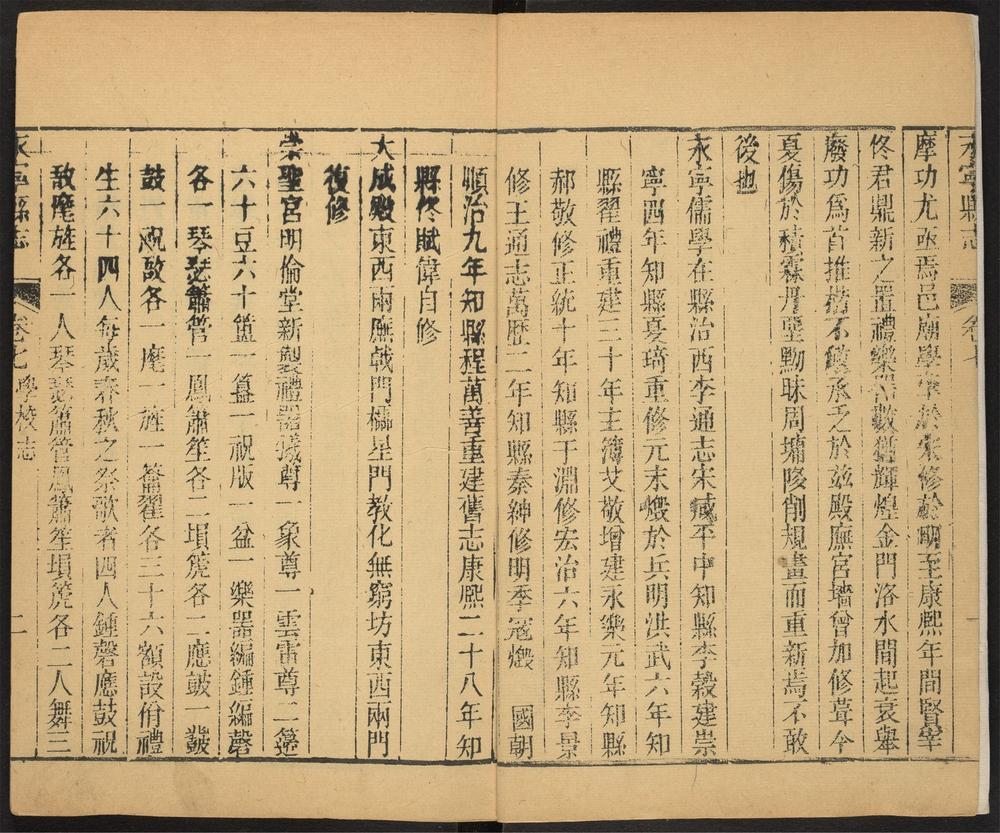 永寧縣志
卷七
摩功尤亟焉邑廟學宰於宋修於明至康熙年間賢宰
佟君鼎新之置禮樂器數猶輝煌金門洛水間起衰舉
廢功爲首推楷不承乏於茲殿廡宮墻曾加修葺今
夏傷於積霖丹堊黝昧周墉陊削規畫而重新焉不敢
後也
永寧儒學在縣治西李通志宋咸平中知縣李毅建崇
寧四年知縣夏琦重修元末燬於兵明洪武六年知
縣翟禮重建三十年主簿艾敬增建永樂元年知縣
郝敬修正統十年知縣于淵修宏治六年知縣李景
修王通志萬歷二年知縣秦紳修明季寇燬 國朝
順治九年知縣程萬善重建舊志康熙二十八年知
縣佟賦偉自修
大成殿東西兩廡戟門櫺星門教化無窮坊東西兩門
復修
崇聖宮明倫堂新製禮器犧尊一象尊一雲雷尊二籩
六十豆六十簠一簋一祝版一盆一樂器編鍾編磬
各一琴瑟簫管一鳳簫笙各二塤箎各二應鼓一鼗
鼓一柷敔各一麾一旌一籥翟各三十六額設佾禮
生六十四人每歲春秋之祭歌者四人鍾磬應鼓祝
敔麾旌各一人琴瑟簫管鳳簫笙塤箎各二人舞三
永寧縣志
卷七 學校志
二